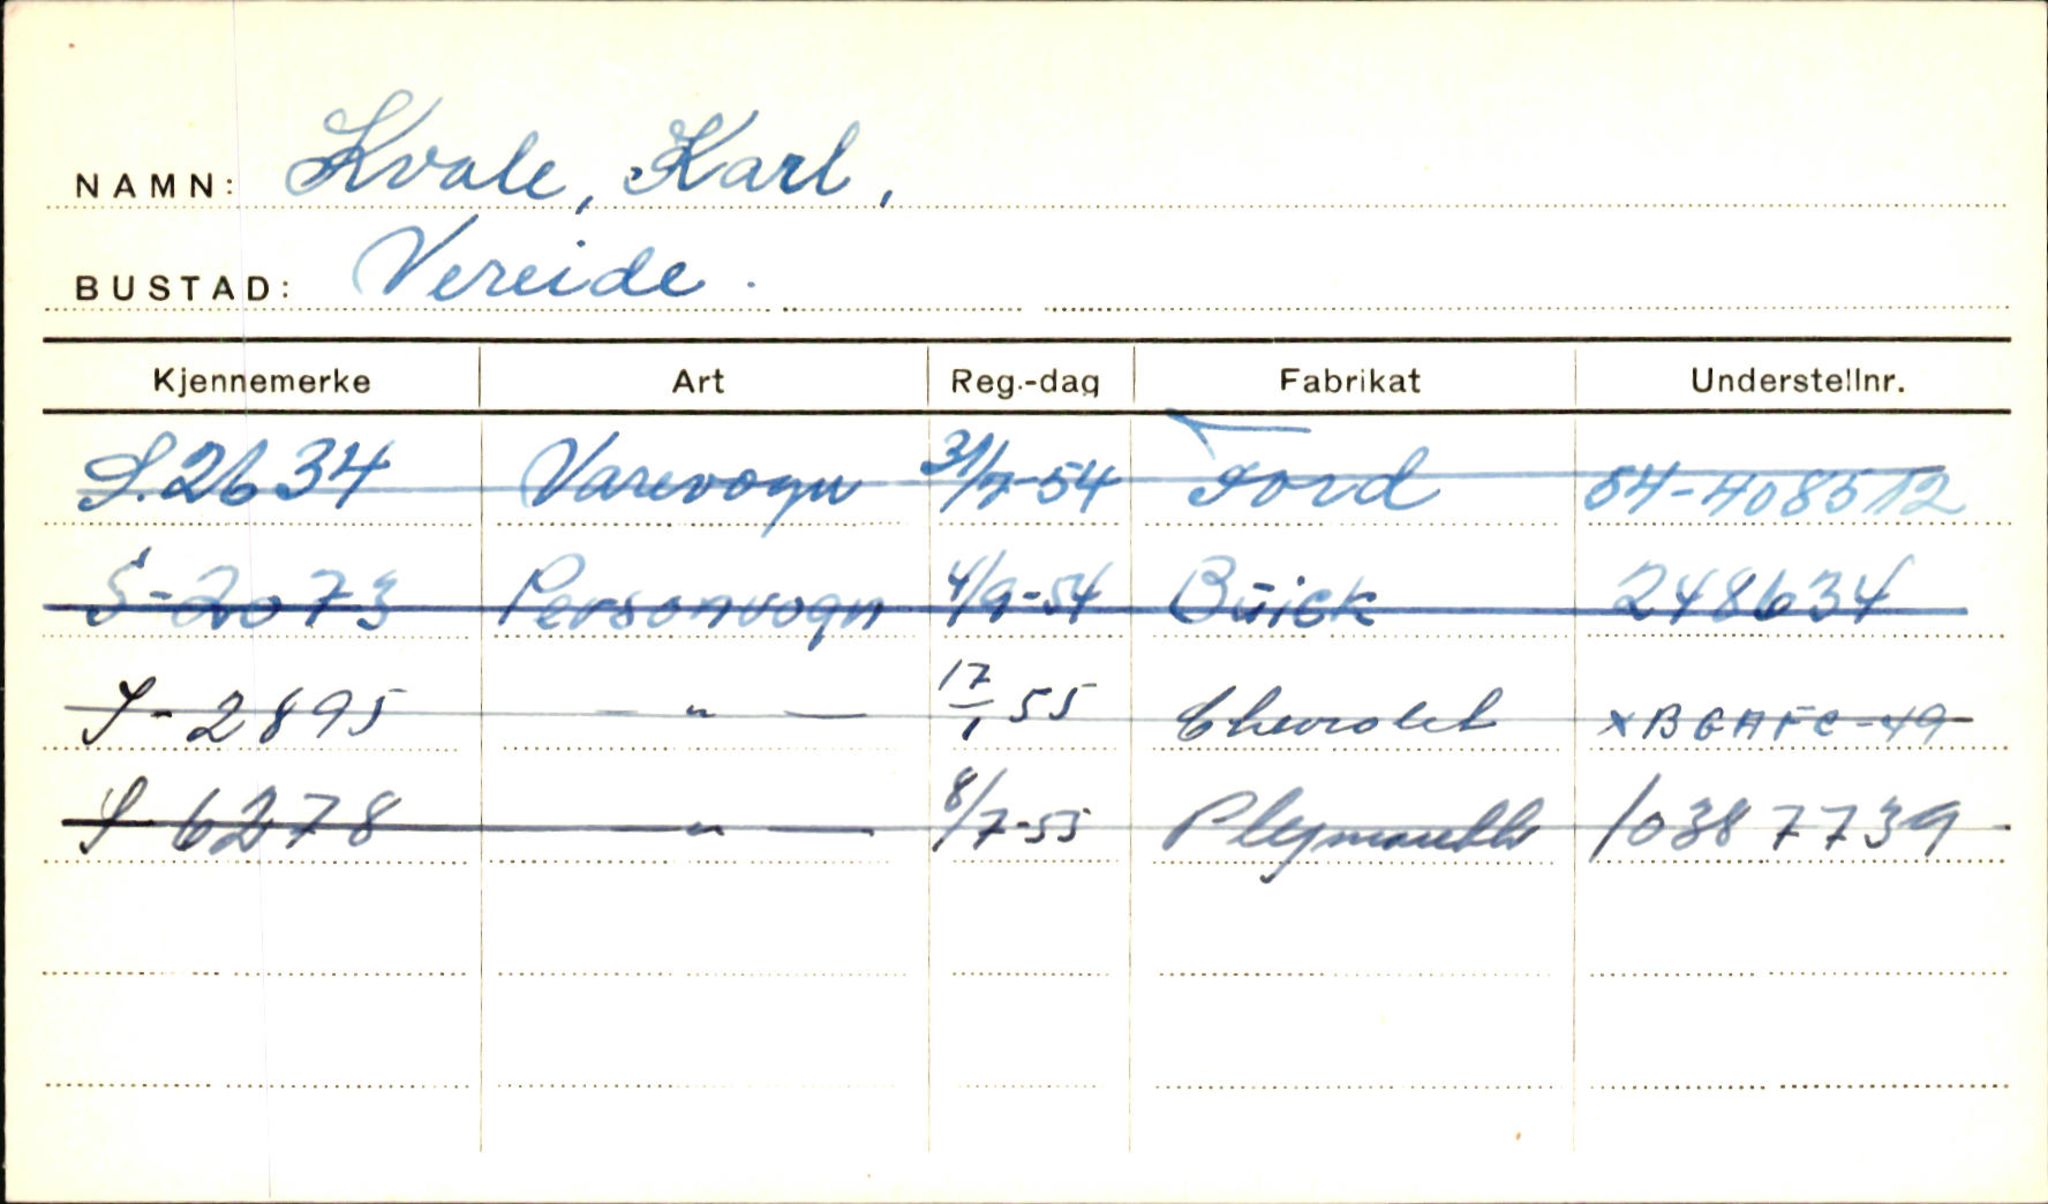 NAMN: Kvale, Karl,
BUSTAD: Vereide.
Kjennemerke Art Reg.-dag Fabrikat Understellnr.
S.2634 Varevogn 31/7-54 Ford 54-408512
S-2073 Personvogn 4/9-54 Buick 248634
S-2895 — " — 17/1 55 Chevrolet XBGAFC-49
S-6278 — " — 8/7-55 Plymouth 10387739